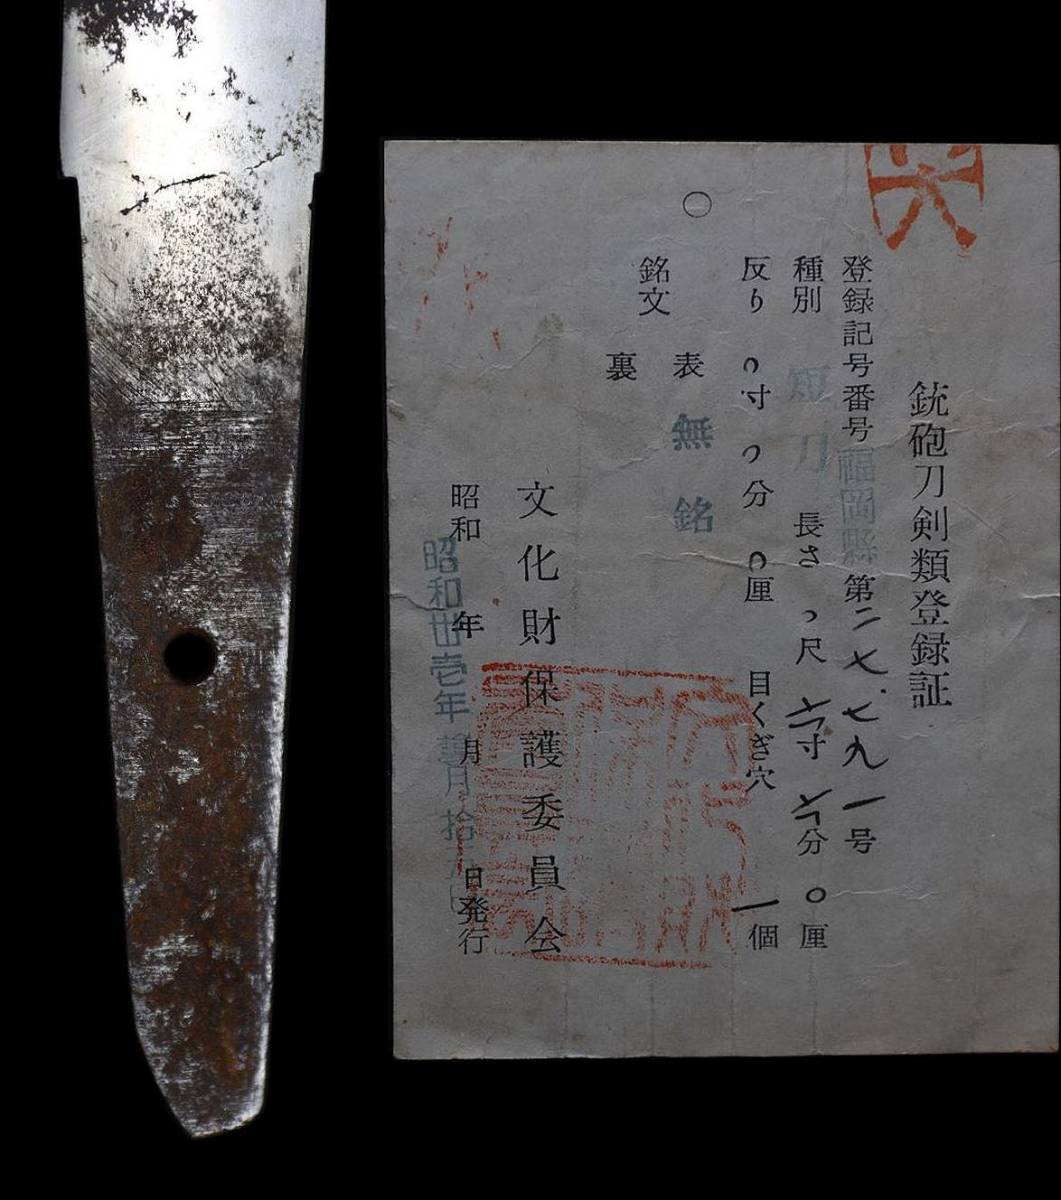 銃砲刀剣類登録証
登録記号番号 福岡縣 第二七七九一号
種別 短刀 長さ 尺 六寸 六分 〇厘
反り 〇寸 〇分 〇厘 目くぎ穴 一個
銘文 表 無銘
裏
文化財保護委員会
昭和 年 月 日発行
昭和卅壱年 月拾